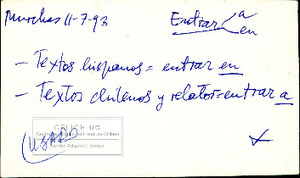 Murchas 11-7-93
Entrar < a
en
- Textos hispanos = entrar en
- Textos chilenos y relator = entrar a
CELICH UC
(USAR)